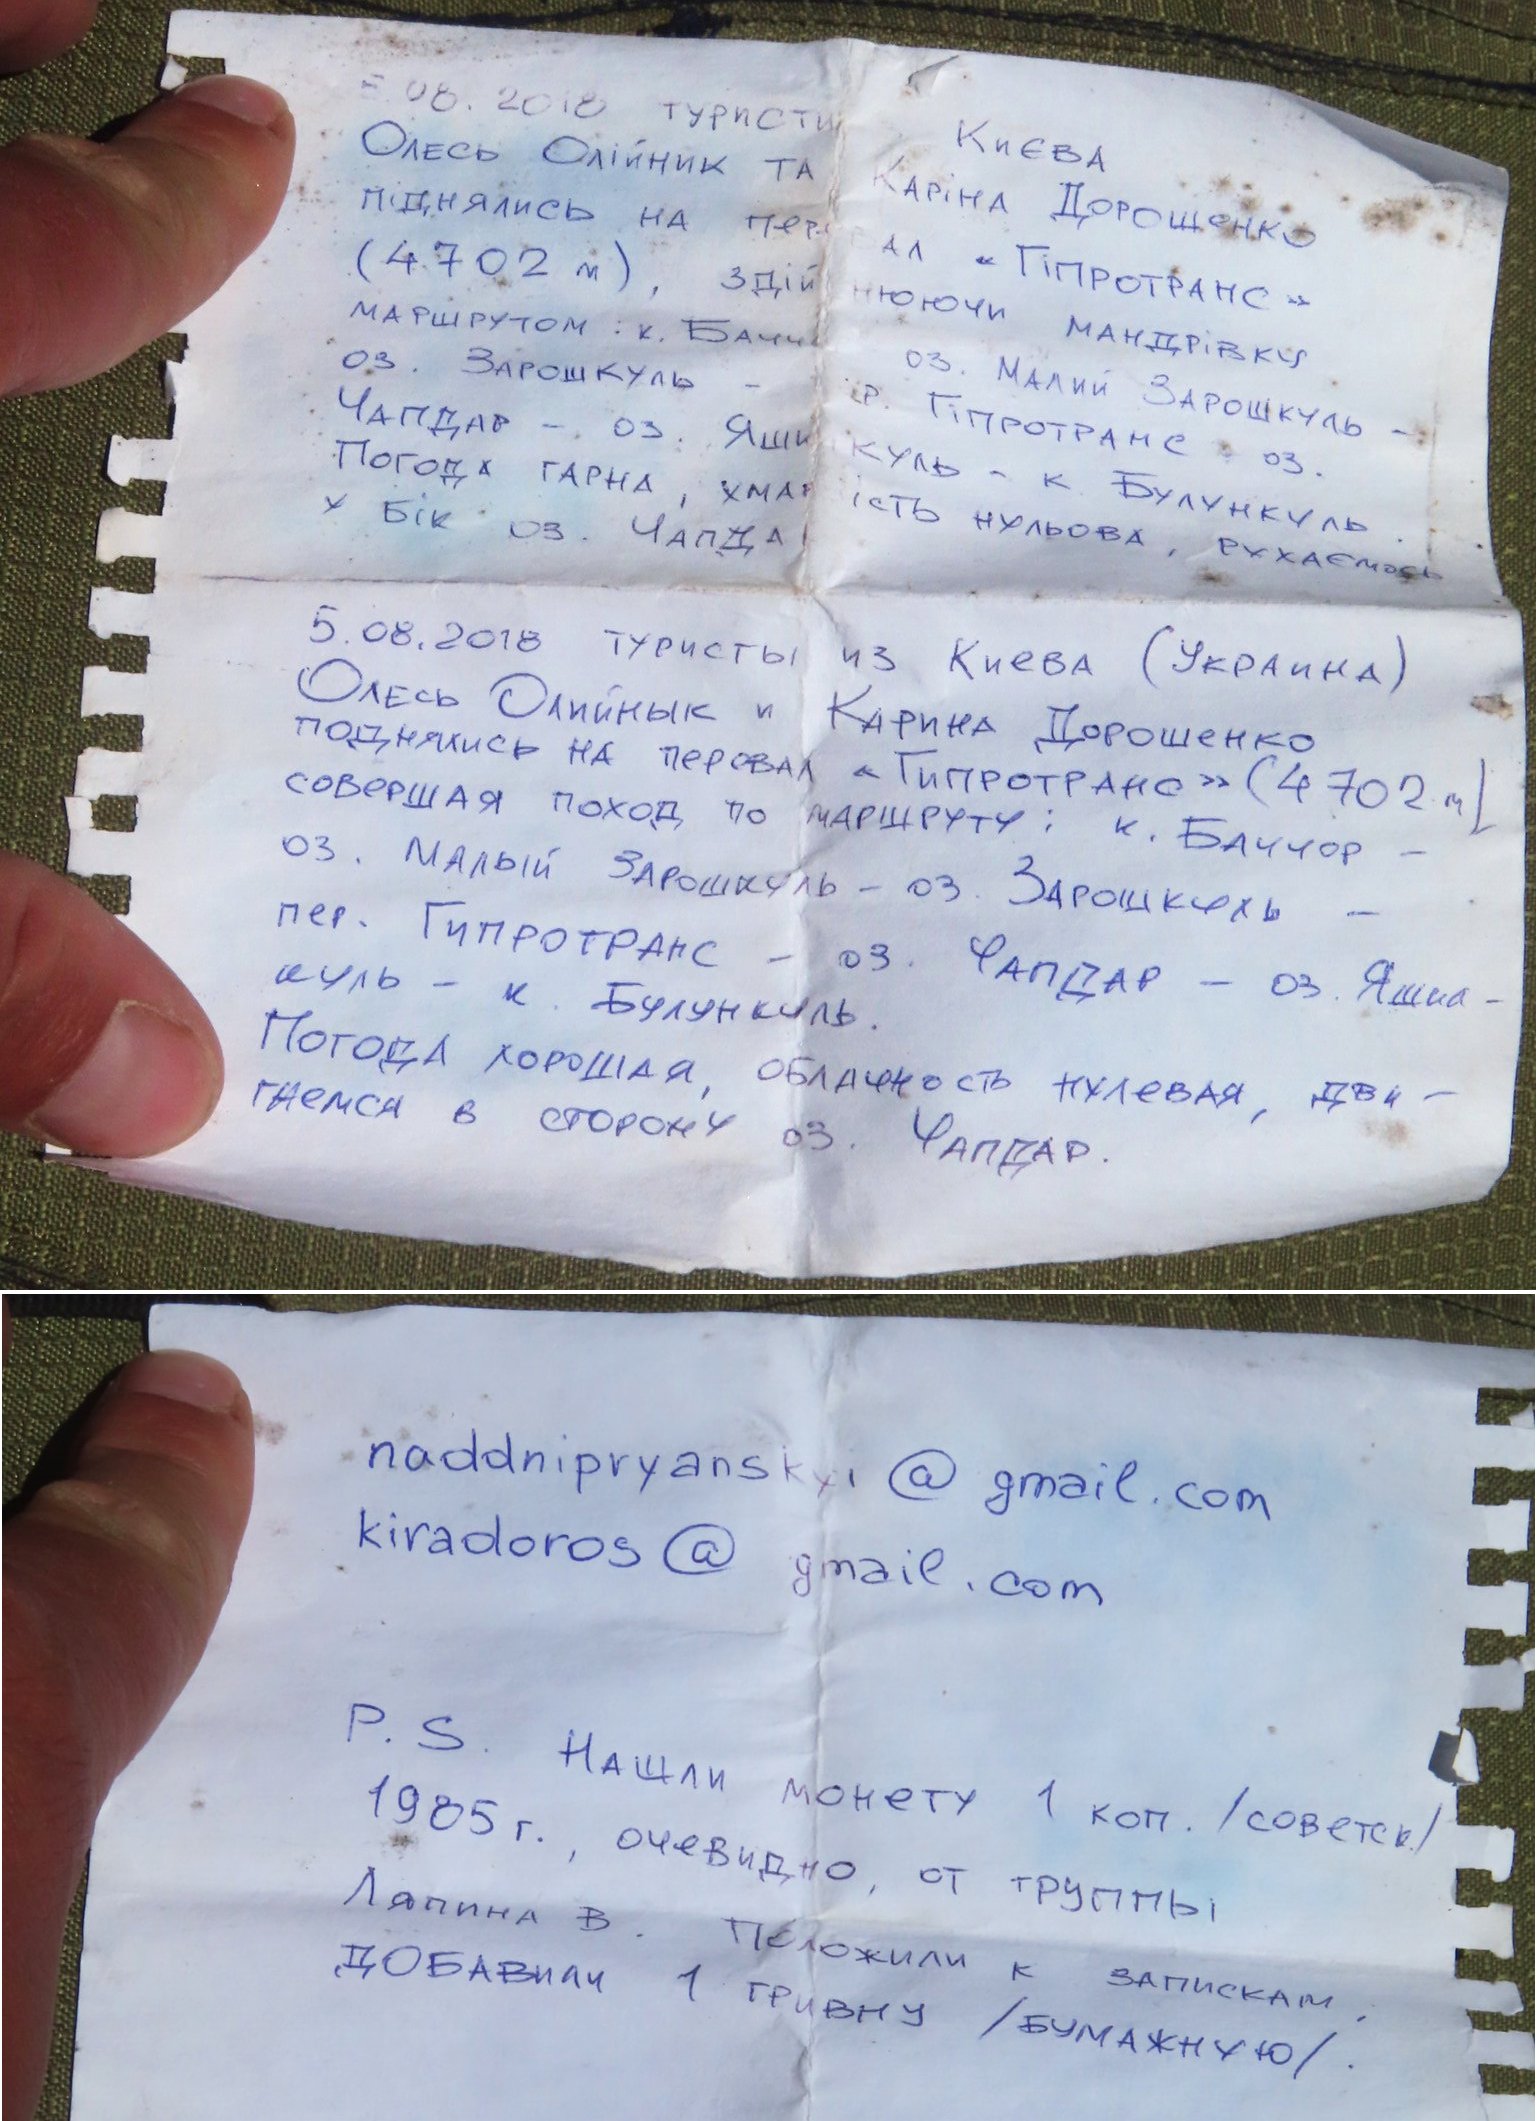 5.08.2018 туристи Києва
Олесь Олійник та Каріна Дорошенко
піднялись на перевал «Гіпротранс»
(4702 м), здійснюючи мандрівку
маршрутом: к. Баччо оз. Малий Зарошкуль -
оз. Зарошкуль - пер. Гіпротранс - оз.
Чапдар - оз. Яшилькуль - к. Булункуль.
Погода гарна, хмарність нульова, рухаємось
у бік оз. Чапдар
5.08.2018 туристы из Киева (Украина)
Олесь Олийнык и Карина Дорошенко
поднялись на перовал «Гипротранс» (4702 м)
совершая поход по маршруту: к. Баччор -
оз. Малый Зарошкуль - оз. Зарошкуль -
пер. Гипротранс - оз. Чапдар - оз. Яшил-
куль - к. Булункуль.
Погода хорошая, облачность нулевая, дви-
гаемся в сторону оз. Чапдар.
naddnipryanskyi@gmail.com
kiradoros@gmail.com
P.S. Нашли монету 1 коп. /советск./
1985 г., очевидно, от группы
Ляпина В. Положили к запискам,
добавили 1 гривну /бумажную/.